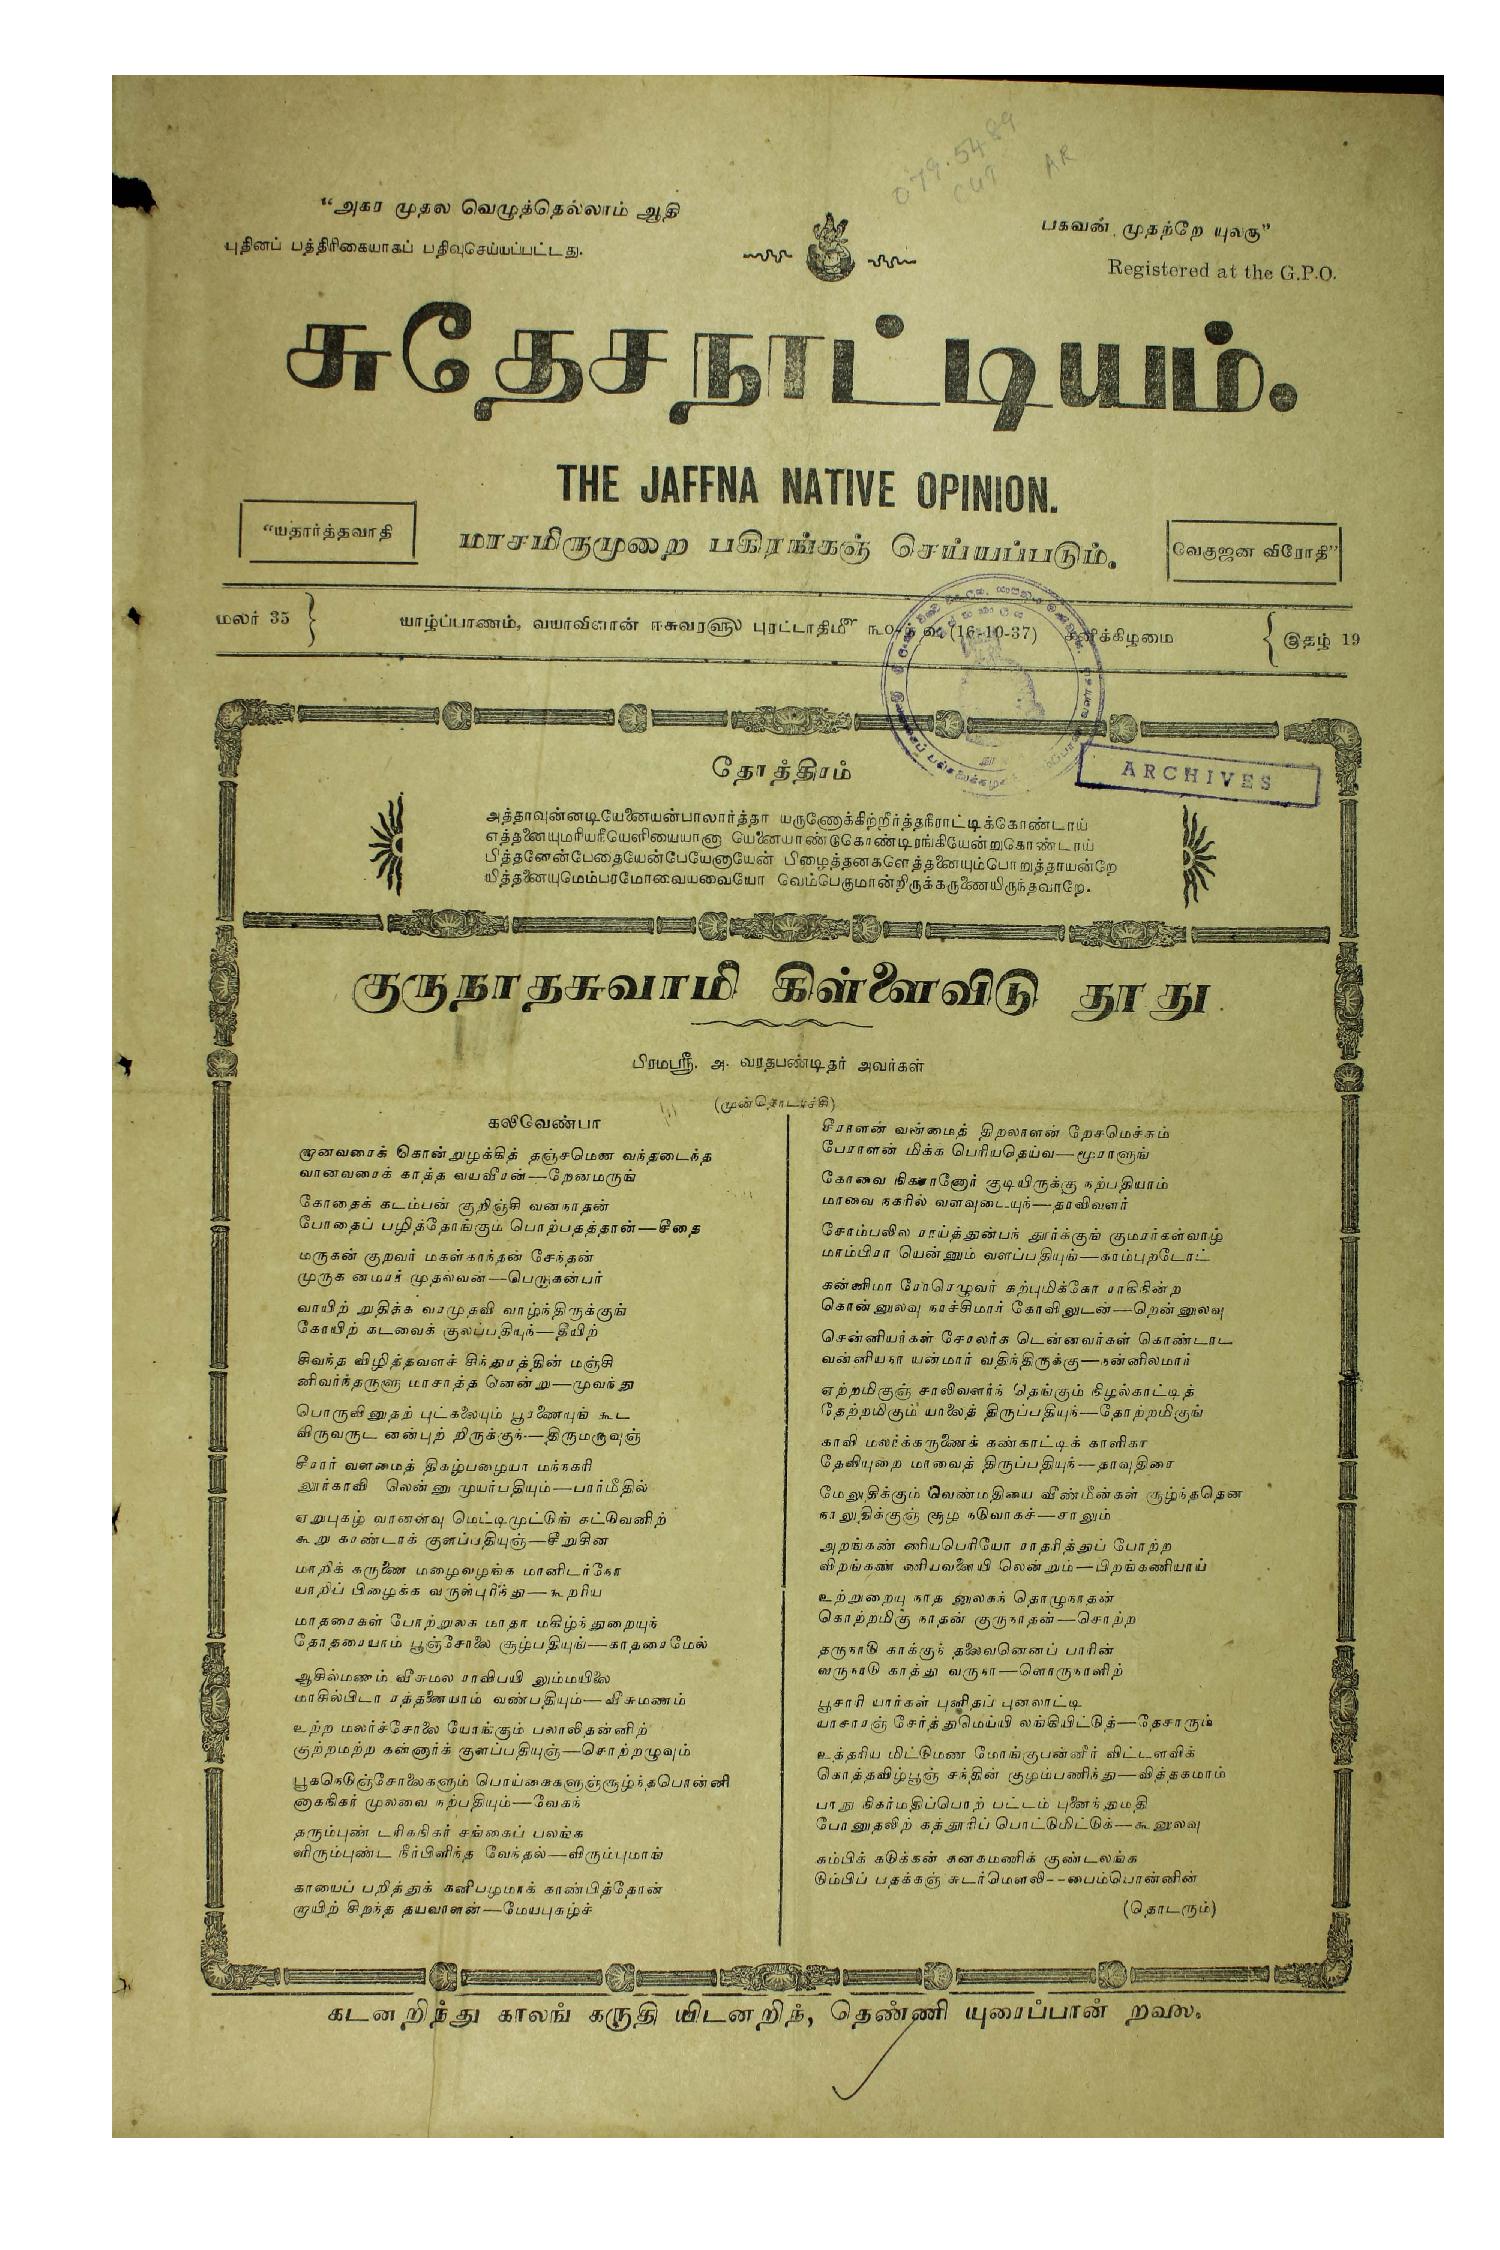 079.5489
CUT AR
“அகர முதல வெழுத்தெல்லாம் ஆதி
பகவன் முதற்றே யுலகு”
புதினப் பத்திரிகையாகப் பதிவுசெய்யப்பட்டது.
Registered at the G.P.O.
சுதேசநாட்டியம்.
THE JAFFNA NATIVE OPINION.
“யதார்த்தவாதி
மாசமிருமுறை பகிரங்கஞ் செய்யப்படும்.
வெகுஜன விரோதி”
மலர் 35
யாழ்ப்பாணம், வயாவிளான் ஈசுவரளு புரட்டாதிமீ (16-10-37) சனிக்கிழமை
இதழ் 19
ARCHIVES
தோத்திரம்
அத்தாவுன்னடியேனையன்பாலார்த்தா யருணோக்கிற்றீர்த்தநீராட்டிக்கொண்டாய்
எத்தனையுமரியநீயெளியையானா யெனையாண்டுகொண்டிரங்கியேன்றுகொண்டாய்
பித்தனேன்பேதையேன்பேயேனாயேன் பிழைத்தனகளெத்தனையும்பொறுத்தாயன்றே
யித்தனையுமெம்பரமோவையவையோ வெம்பெருமான்றிருக்கருணையிருந்தவாறே.
குருநாதசுவாமி கிள்ளைவிடு தூது
பிரமஸ்ரீ. அ. வரதபண்டிதர் அவர்கள்
(முன்தொடர்ச்சி)
கலிவெண்பா
வானவரைக் காத்த வயவீரன்—றேனமருங்
கோதைக் கடம்பன் குறிஞ்சி வனநாதன்
போதைப் பழித்தோங்கும் பொற்பதத்தான்—சீதை
மருகன் குறவர் மகள்காந்தன் சேந்தன்
முருக னமரர் முதல்வன்—பெருகன்பர்
வாயிற் றுதிக்க வரமுதவி வாழ்ந்திருக்குங்
கோயிற் கடவைக் குலப்பதியுந்—தீயிற்
சிவந்த விழித்தவளச் சிந்துரத்தின் மஞ்சி
னிவர்ந்தருளு மாசாத்த னென்று—முவந்து
பொருவினுதற் புட்கலையும் பூரணையுங் கூட
விருவருட னன்புற் றிருக்குந்—திருமருவுஞ்
சீரார் வளமைத் திகழ்பழையா மந்நகரி
லூர்காவி லென்னு முயர்பதியும்—பார்மீதில்
ஏறுபுகழ் வானளவு மெட்டிமுட்டுங் கட்டுவனிற்
கூறு காண்டாக் குளப்பதியுஞ்—சீறுசின
மாறிக் கருணை மழைவழங்க மானிடர்நோ
யாறிப் பிழைக்க வருள்புரிந்து—கூறரிய
மாதரைகள் போற்றுலக மாதா மகிழ்ந்துறையுந்
தோதரையாம் பூஞ்சோலை சூழ்பதியுங்—காதரைமேல்
ஆசில்மணம் வீசுமல ராவிபயி லும்மயிலை
மாசில்பிடா ரத்தனையாம் வண்பதியும்—வீசுமணம்
உற்ற மலர்ச்சோலை யோங்கும் பலாலிதன்னிற்
குற்றமற்ற கன்னார்க் குளப்பதியுஞ்—சொற்றழுவும்
பூகநெடுஞ்சோலைகளும் பொய்கைகளுஞ்சூழ்ந்தபொன்னி
னாகநிகர் முலவை நற்பதியும்—வேகந்
தரும்புண் டரிகநிகர் சங்கைப் பலங்க
ளிரும்புண்ட நீர்பிளிந்த வேந்தல்—விரும்புமாங்
காயைப் பறித்துக் கனிபழமாக் காண்பித்தோன்
றாயிற் சிறந்த தயவாளன்—மேயபுகழ்ச்
சீராளன் வண்மைத் திறலாளன் றேசமெச்சும்
பேராளன் மிக்க பெரியதெய்வ—மூராளுங்
கோவை நிகரானோர் குடியிருக்கு நற்பதியாம்
மாவை நகரில் வளவுடையுந்—தாவிவளர்
சோம்பலில ராய்த்துன்பந் தூர்க்குங் குமரர்கள்வாழ்
மாம்பிரா யென்னும் வளப்பதியுங்—காம்புறடோட்
கன்னிமா ரோரெழுவர் கற்புமிக்கோ ராகிநின்ற
கொன்னுலவு நாச்சிமார் கோவிலுடன்—றென்னுலவு
சென்னியர்கள் சேரலர்க டென்னவர்கள் கொண்டாட
வன்னியநா யன்மார் வதிந்திருக்கு—நன்னிலமார்
ஏற்றமிகுஞ் சாலிவளர்ந் தெங்கும் நிழல்காட்டித்
தேற்றமிகும் யாலைத் திருப்பதியுந்—தோற்றமிகுங்
காவி மலர்க்கருணைக் கண்காட்டிக் காளிகா
தேவியுறை மாவைத் திருப்பதியுந்—தாவுதிரை
மேலுதிக்கும் வெண்மதியை வீண்மீன்கள் சூழ்ந்ததென
நாலுதிக்குஞ் சூழ நடுவாகச்—சாலும்
அறங்கண் ணியபெரியோ ராதரித்துப் போற்ற
விறங்கண் ணியவளையி லென்றும்—பிறங்கணியாய்
உற்றுறையு நாத னுலகந் தொழுநாதன்
கொற்றமிகு நாதன் குருநாதன்—சொற்ற
தருநாடு காக்குந் தலைவனெனப் பாரின்
வருநாடு காத்து வருநா—ளொருநாளிற்
பூசாரி யார்கள் புனிதப் புனலாட்டி
யாசாரஞ் சேர்த்துமெய்யி லங்கியிட்டுத்—தேசாரும்
உத்தரிய மிட்டுமண மோங்குபன்னீர் விட்டளவிக்
கொத்தவிழ்பூஞ் சந்தின் குழம்பணிந்து—வித்தகமாம்
பாது நிகர்மதிப்பொற் பட்டம் புனைந்துமதி
போனுதலிற் கத்தூரிப் பொட்டுமிட்டுக்—கூனுலவு
கம்பிக் கடுக்கன் கனகமணிக் குண்டலங்க
டும்பிப் பதக்கஞ் சுடர்மௌலி--பைம்பொன்னின்
(தொடரும்)
கடனறிந்து காலங் கருதி யிடனறிந், தெண்ணி யுரைப்பான் றலை.